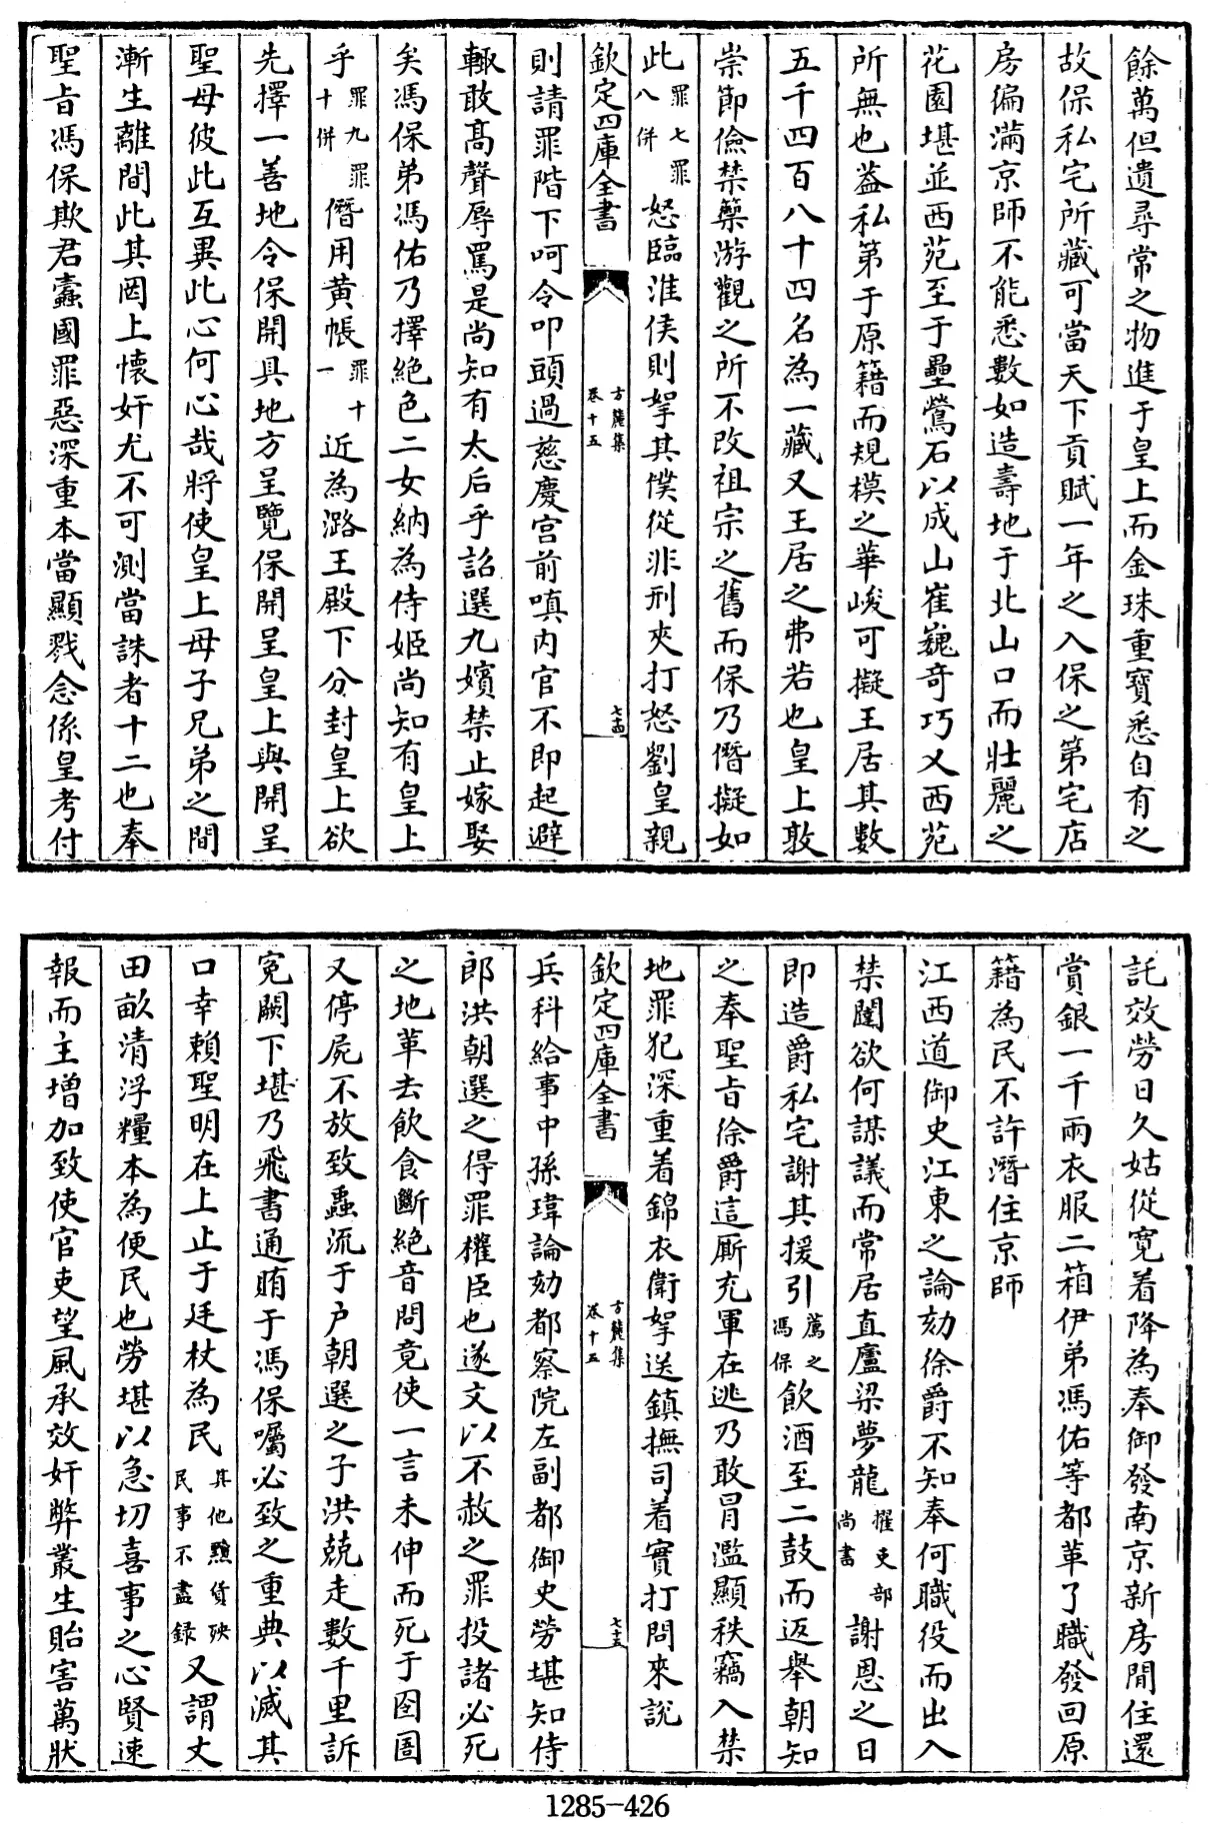 餘萬但遺尋常之物進于皇上而金珠重寳悉自有之
故保私宅所藏可當天下貢賦一年之入保之第宅店
房徧滿京師不能悉數如造壽地于北山口而壯麗之
花園堪並西苑至于壘鶯石以成山崔巍奇巧又西苑
所無也葢私第于原籍而規模之華峻可擬王居其數
五千四百八十四名為一藏又王居之弗若也皇上敦
崇節儉禁藥游觀之所不改祖宗之舊而保乃僭擬如
此罪七罪八併怒臨淮侯則拏其僕從非刑夾打怒劉皇親
欽定四庫全書
方麓集
卷十五
七十四
則請罪階下呵令叩頭過慈慶宫前嗔内官不即起避
輙敢髙聲辱罵是尚知有太后乎詔選九嬪禁止嫁娶
矣馮保弟馮佑乃擇絶色二女納為侍姬尚知有皇上
乎罪九罪十併僭用黄帳罪十一近為潞王殿下分封皇上欲
先擇一善地令保開具地方呈覽保開呈皇上與開呈
聖母彼此互異此心何心哉將使皇上母子兄弟之間
漸生離間此其罔上懷奸尤不可測當誅者十二也奉
聖旨馮保欺君蠹國罪惡深重本當顯戮念係皇考付
託效勞日久姑從寛着降為奉御發南京新房閒住還
賞銀一千兩衣服二箱伊弟馮佑等都革了職發回原
籍為民不許潛住京師
江西道御史江東之論劾徐爵不知奉何職役而出入
禁闥欲何謀議而常居直廬梁夢龍擢吏部尚書謝恩之日
即造爵私宅謝其援引薦之馮保飲酒至二鼓而返舉朝知
之奉聖旨徐爵這厮充軍在逃乃敢冒濫顯秩竊入禁
地罪犯深重着錦衣衛拏送鎮撫司着實打問來說
欽定四庫全書
方麓集
卷十五
七十五
兵科給事中孫瑋論劾都察院左副都御史勞堪知侍
郎洪朝選之得罪權臣也遂文以不赦之罪投諸必死
之地革去飲食斷絶音問竟使一言未伸而死于囹圄
又停屍不放致蟲流于户朝選之子洪兢走數千里訴
寃闕下堪乃飛書通賄于馮保囑必致之重典以滅其
口幸賴聖明在上止于廷杖為民其他黷貨殃民事不盡録又謂丈
田畝清浮糧本為便民也勞堪以急切喜事之心賢速
報而主增加致使官吏望風承效奸弊叢生貽害萬狀
1285-426